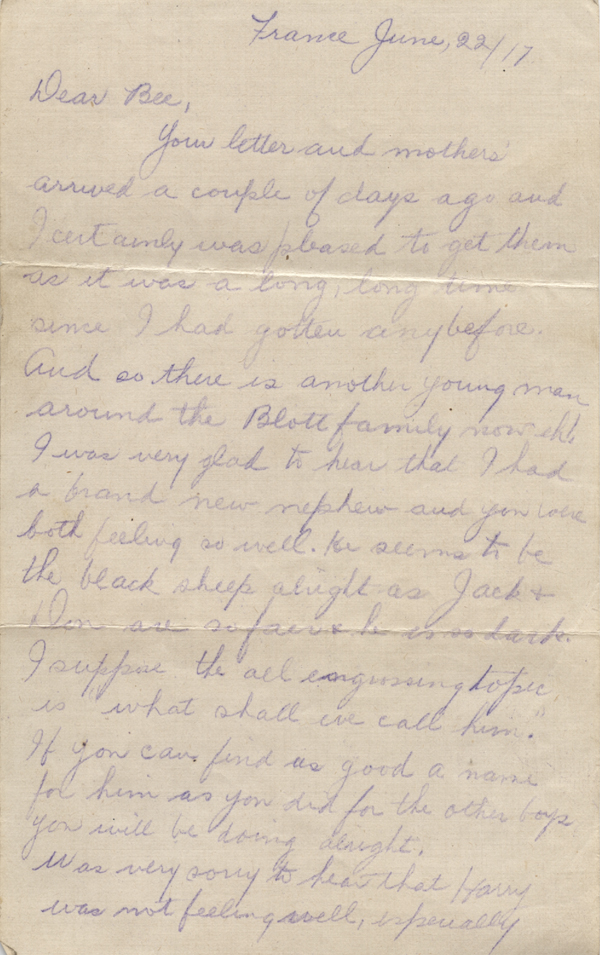 France June, 22/17
Dear Bee,
Your letter and mothers'
arrived a couple of days ago and
I certainly was pleased to get them
as it was a long, long time
since I had gotten any before.
And so there is another young man
around the Blott family now eh!
I was very glad to hear that I had
a brand new nephew and you were
both feeling so well. He seems to be
the black sheep alright as Jack &
Don are so fair & he is so dark.
I suppose the all engrossing topic
is "what shall we call him."
If you can find as good a name
for him as you did for the other boys
you will be doing alright.
Was very sorry to hear that Harry
was not feeling well, especially